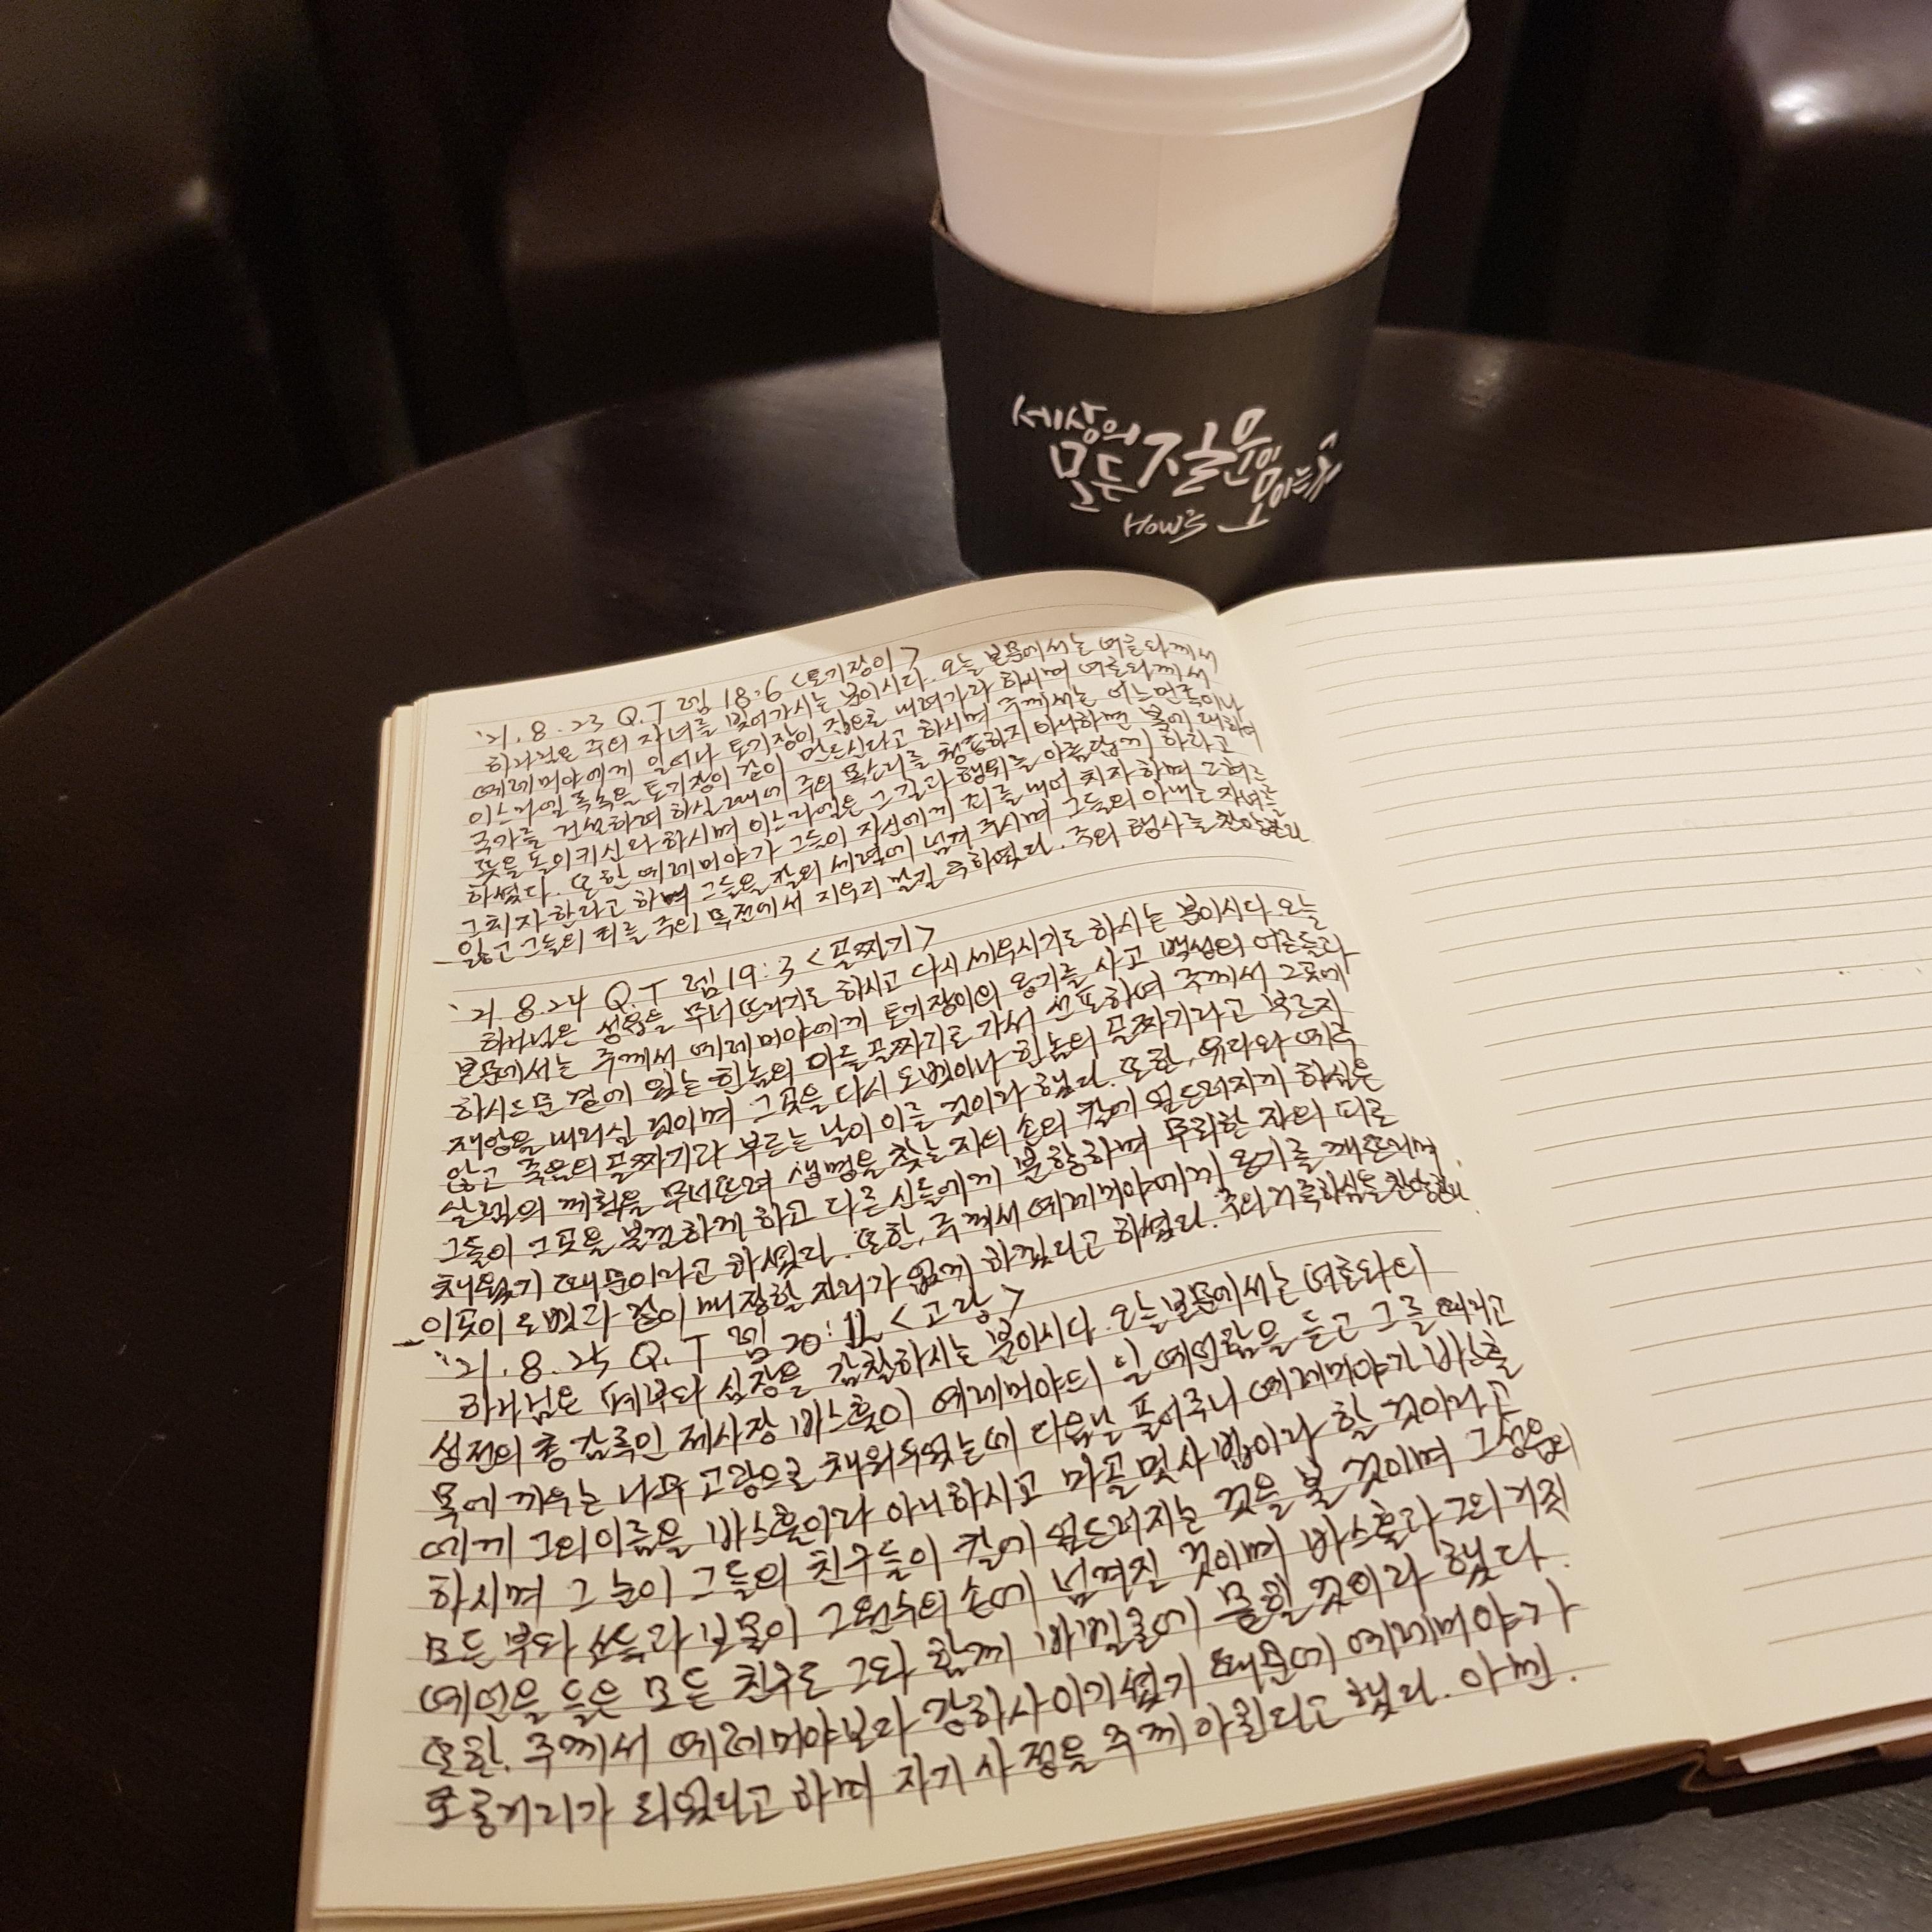 세상의
모든 질문이
모이는 곳
How's
'21. 8. 23 Q.T 렘 18:6 <토기장이>
하나님은 주의 자녀를 빚어가시는 분이시다. 오늘 본문에서는 여호와께서
예레미야에게 일어나 토기장이 집으로 내려가라 하시며 여호와께서
이스라엘 족속을 토기장이 같이 만드신다고 하시며 주께서는 어느 민족이나
국가를 건설하려 하실 때에 주의 목소리를 청종하지 아니하면 복에 대하여
뜻을 돌이키신다 하시며 이스라엘은 그 길과 행위를 아름답게 하라고
하셨다. 또한 예레미야가 그들이 자신에게 죄를 내어 치자 하며 그 혀로
그치자 한다고 하며 그들을 칼의 세력에 넘겨 주시며 그들의 아내는 자녀를
잃고 그들의 죄를 주의 목전에서 지우지 말길 구하였다. 주의 행사를 찬양한다
'21. 8. 24 Q.T 렘 19:3 <골짜기>
하나님은 성읍을 무너뜨리기도 하시고 다시 세우시기도 하시는 분이시다. 오늘
본문에서는 주께서 예레미야에게 토기장이의 옹기를 사고 백성의 어른들과
하시드 문 곁에 있는 힌놈의 아들 골짜기로 가서 선포하여 주께서 그곳에
재앙을 내리실 것이며 그곳을 다시 도벳이나 힌놈의 골짜기라고 부르지
않고 죽음의 골짜기라 부르는 날이 이를 것이라 했다. 또한, 유다와 예루
살렘의 계획을 무너뜨려 생명을 찾는 자의 손의 칼에 엎드러지게 하심은
그들이 그곳을 불결하게 하고 다른 신들에게 분향하며 무죄한 자의 피로
채웠기 때문이라고 하셨다. 또한, 주께서 예레미야에게 옹기를 깨뜨리며
이곳이 도벳과 같이 매장할 자리가 없게 하겠다고 하셨다. 주의 거룩하심을 찬양한다.
'21. 8. 25 Q.T 렘 20:12 <고랑>
하나님은 폐부와 심장을 감찰하시는 분이시다. 오늘 본문에서는 여호와의
성전의 총 감독인 제사장 바스훌이 예레미야의 일 예언함을 듣고 그를 때리고
목에 끼우는 나무 고랑으로 채워두었는데 다음날 풀어주니 예레미야가 바스훌
에게 그의 이름을 바스훌이라 아니하시고 마골 밋사빕이라 할 것이라고
하시며 그 눈이 그들의 친구들이 칼에 엎드러지는 것을 볼 것이며 그 성읍의
모든 부와 소득과 보물이 그 원수의 손에 넘겨질 것이며 바스훌과 그의 거짓
예언을 들은 모든 친구도 그와 함께 바벨론에 묻힐 것이라 했다.
또한, 주께서 예레미야보다 강하사 이기셨기 때문에 예레미야가
조롱거리가 되었다고 하며 자기 사정을 주께 아뢴다고 했다. 아멘.